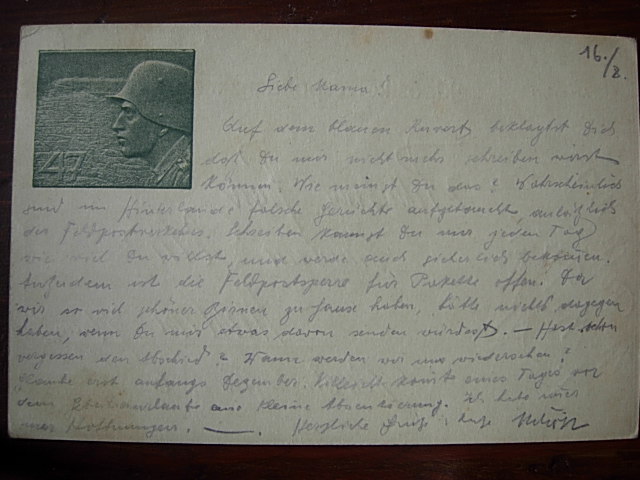 16./8.
47
Liebe Mama!
Auf dem blauen Kuvert beklagtest Dich
daß Du mir nicht mehr schreiben wirst
können. Wie meinst Du das? Wahrscheinlich
sind im Hinterlande falsche Gerüchte aufgetaucht, anläßlich
des Feldpostverkehrs. Schreiben kannst Du mir jeden Tag
wie viel Du willst, und werde auch sicherlich bekommen.
Außerdem ist die Feldpostsperre für Pakette offen. Da
wir so viel schöner Birnen zu Hause haben, hätte nichts dagegen
haben, wenn Du mir etwas davon senden würdest. — Hast schon
vergessen den Abschied? Wann werden wir uns wiedersehen?
Glaube erst anfangs Dezember. Vielleicht kommt eines Tages vor
dem eine kleine Abkommandierung. Ich habe
Hoffnungen. — Herzliche Grüße